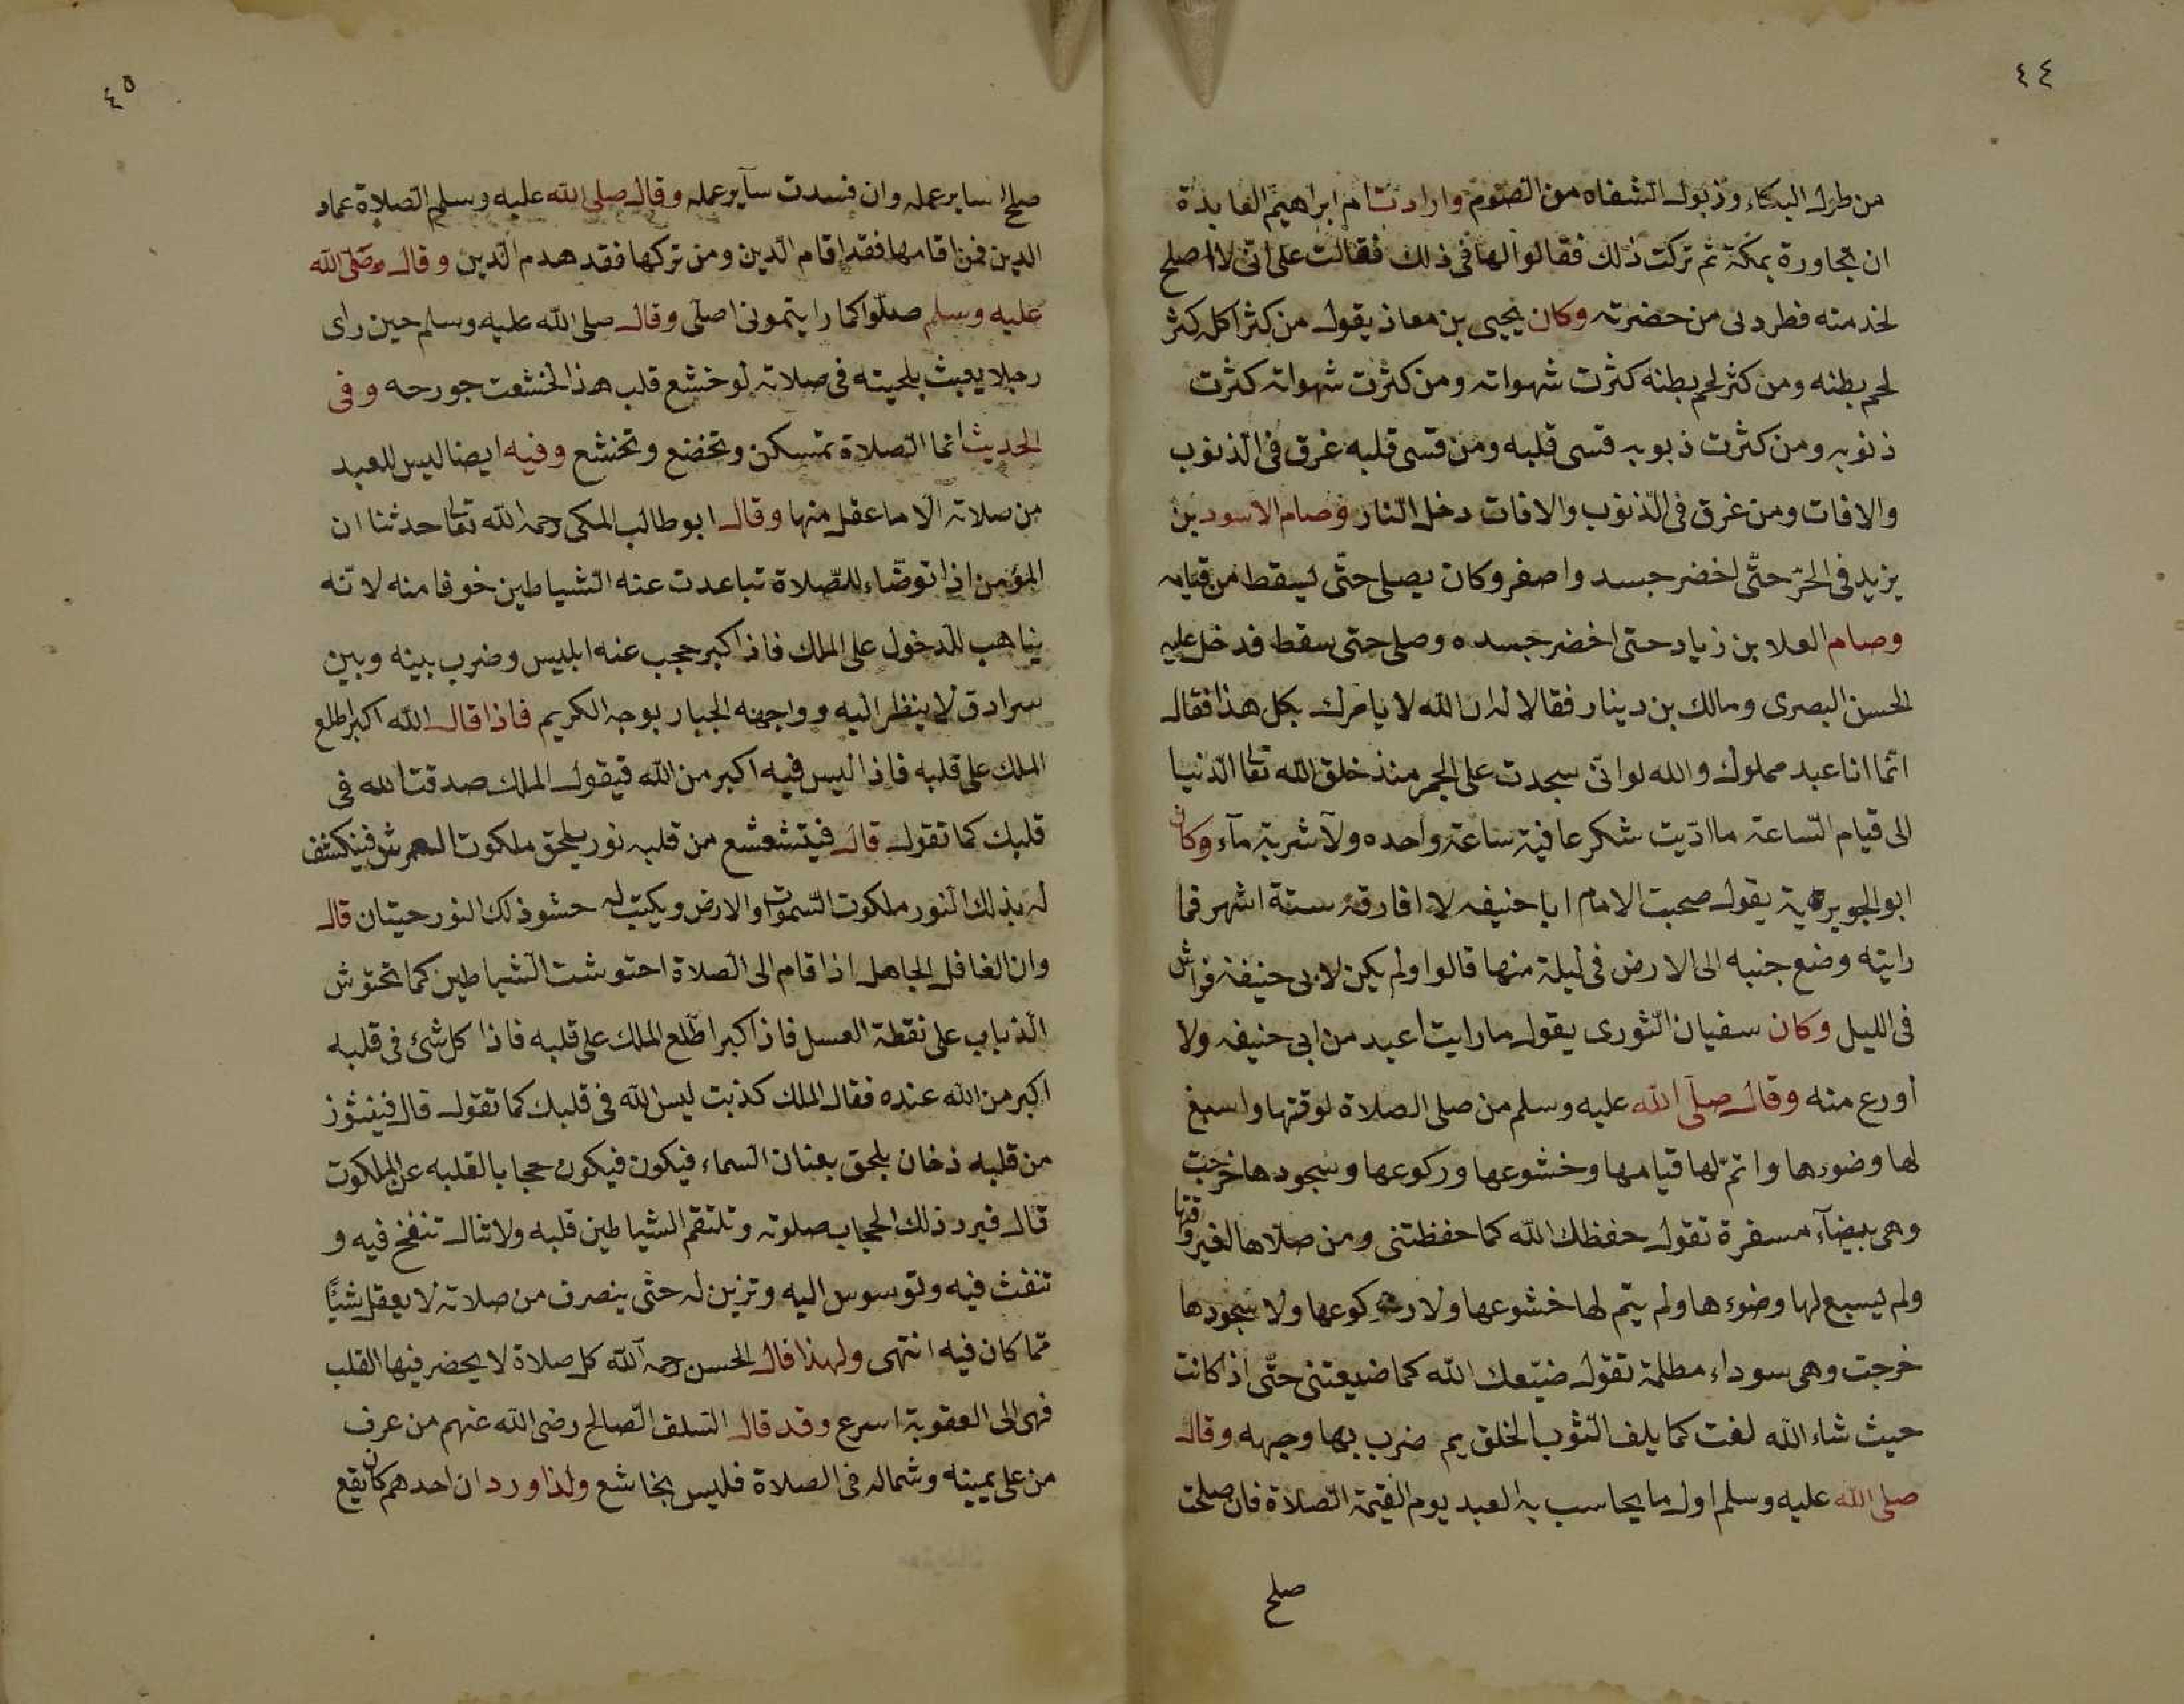 ٤٤
من طرك البكاء وذبول الشفاه من الصوم وارادت ام ابراهيم العابدة
ان تجاورة بمكة ثم تركت ذلك فقالوا لها فى ذلك فقالت على انى لا اصلح
لخدمته فطردنى من حضرته وكان يحيى بن معاذ يقول من كثر اكله كثر
لحم بطنه ومن كثر لحم بطنه كثرت شهواته ومن كثرت شهواته كثرت
ذنوبه ومن كثرت ذبوبه قسى قلبه ومن قسى قلبه غرق فى الذنوب
والافات ومن غرق فى الذنوب والافات دخل النار وصام الاسود بن
يزيد فى الحر حتى اخضر جسد واصفر وكان يصلى حتى ليسقط من قيامه
وصام العلا بن زياد حتى اخضر جسده وصلى حتى سقط فدخل عليه
الحسن البصرى ومالك بن دينار فقالا له ان الله لا يامرك بكل هذا فقال
انما انا عبد مملوك والله لو انى سجدت على الجمر منذ خلق الله تعالى الدنيا
الى قيام الساعة ما اديت شكر عافية ساعة واحده ولا شربة ماء وكان
ابو الجويرية يقول صحبت الامام ابا حنيفه لا افارقه ستة اشهر فما
رايته وضع جنبه الى الارض فى ليلة منها قالوا ولم يكن لابى حنيفة فراش
فى الليل وكان سفيان الثورى يقول ما رايت اعبد من ابى حنيفه ولا
أورع منه وقال صلى الله عليه وسلم من صلى الصلاة لوقتها واسبغ
لها وضوءها واتم لها قيامها وخشوعها وركوعها وسجودها خرجت
وهى بيضاء مسفرة تقول حفظك الله كما حفظتنى ومن صلاها لغير وقتها
ولم يسبع لها وضوءها ولم يتم لها خشوعها ولا ركوعها ولا سجودها
خرجت وهى سوداء مظلمة تقول ضيعك الله كما ضيعتنى حتى اذا كانت
حيث شاء الله لفت كما يلف الثوب الخلق يم ضرب بها وجهه وقال
صلى الله عليه وسلم اول ما يحاسب به العبد يوم القيمة الصلاة فان صلحت
صلح
٤٥
صلح سايرعمله وان فسدت سآيرعمله وقال صلى الله عليه وسلم الصلاة عماد
الدين فمن اقامها فقد اقام الدين ومن تركها فقد هدم الدين وقال صلى الله
عليه وسلم صلوا كما رايتمونى اصلى وقال صلى الله عليه وسلم حين راى
رجلا يعبث بلحيته فى صلاته لو خشع قلب هذا لخشعت جورحه وفى
الحديث انما الصلاة تمسكن وتخضع وتخشع وفيه ايضا ليس للعبد
من صلاته الا ما عقل منها وقال ابو طالب المكى رحمه الله تعالى حدثنا ان
المؤمن اذا توضاء للصلاة تباعدت عنه الشياطين خوفا منه لانه
يتاهب للدخول على الملك فاذا كبر حجب عنه ابليس وضرب بينه وبين
سرادق لا ينظر اليه وواجهه الجبار بوجهه الكريم فاذا قال الله اكبر اطلع
الملك على قلبه فاذا ليس فيه اكبر من الله فيقول الملك صدقت الله فى
قلبك كما تقول قال فيتشعشع من قلبه نور يلحق ملكوت العرش فينكشف
له بذلك النور ملكوت السموات والارض ويكتب له حشو ذلك النور حيتان قال
وان الغافل الجاهل اذا قام الى الصلاة احتوشت الشياطين كما تحتوش
الذباب على نقطة العسل فاذا كبر اطلع الملك على قلبه فاذا كل شئ فى قلبه
اكبر من الله عنده فقال الملك كذبت ليس الله فى قلبك كما تقول قال فيثور
من قلبه دخان يلحق بعنان السماء فيكون فيكون حجابا لقلبه عن الملكوت
قال فيرد ذلك الحجاب صلوته وتلتقم الشياطين قلبه ولا تنال تنفخ فيه و
تنفث فيه وتوسوس اليه وتزين له حتى ينصرف من صلاته لا يعقل شيئا
مما كان فيه انتهى ولهذا قال الحسن رحمه الله كل صلاة لا يحضر فيها القلب
فهى الى العقوبة اسرع وقد قال السلف الصالح رضى الله عنهم من عرف
من على يمينه وشماله فى الصلاة فليس بخاشع ولذا ورد ان احدهم كان يقع